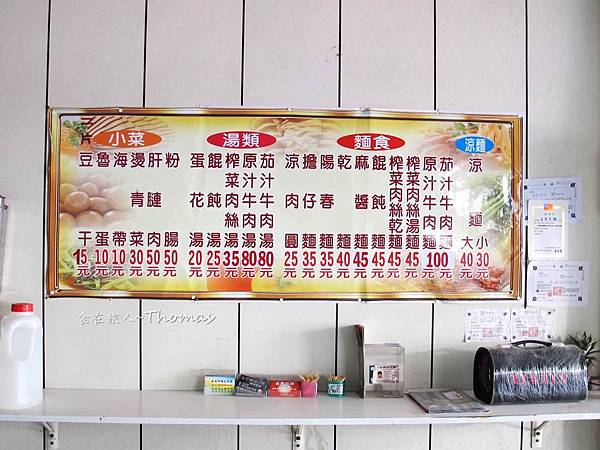 小菜
豆干 15元
魯蛋 10元
海帶 10元
燙青菜 30元
肝肉 50元
粉腸 50元
湯類
蛋花湯 20元
餛飩湯 25元
榨菜肉絲湯 35元
原汁牛肉湯 80元
茄汁牛肉湯 80元
麵食
涼肉圓 25元
擔仔麵 35元
陽春麵 35元
乾麵 40元
麻醬麵 45元
餛飩麵 45元
榨菜肉絲乾麵 45元
榨菜肉絲湯麵 45元
原汁牛肉麵
茄汁牛肉麵
100元
涼麵
涼麵
大 40元
小 30元
食在旅人~Thomas